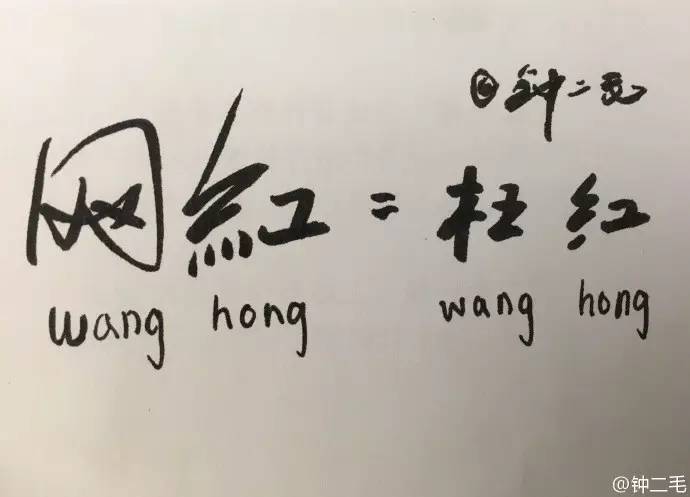 @钟二毛
网紅=枉红
wang hong wang hong
@钟二毛